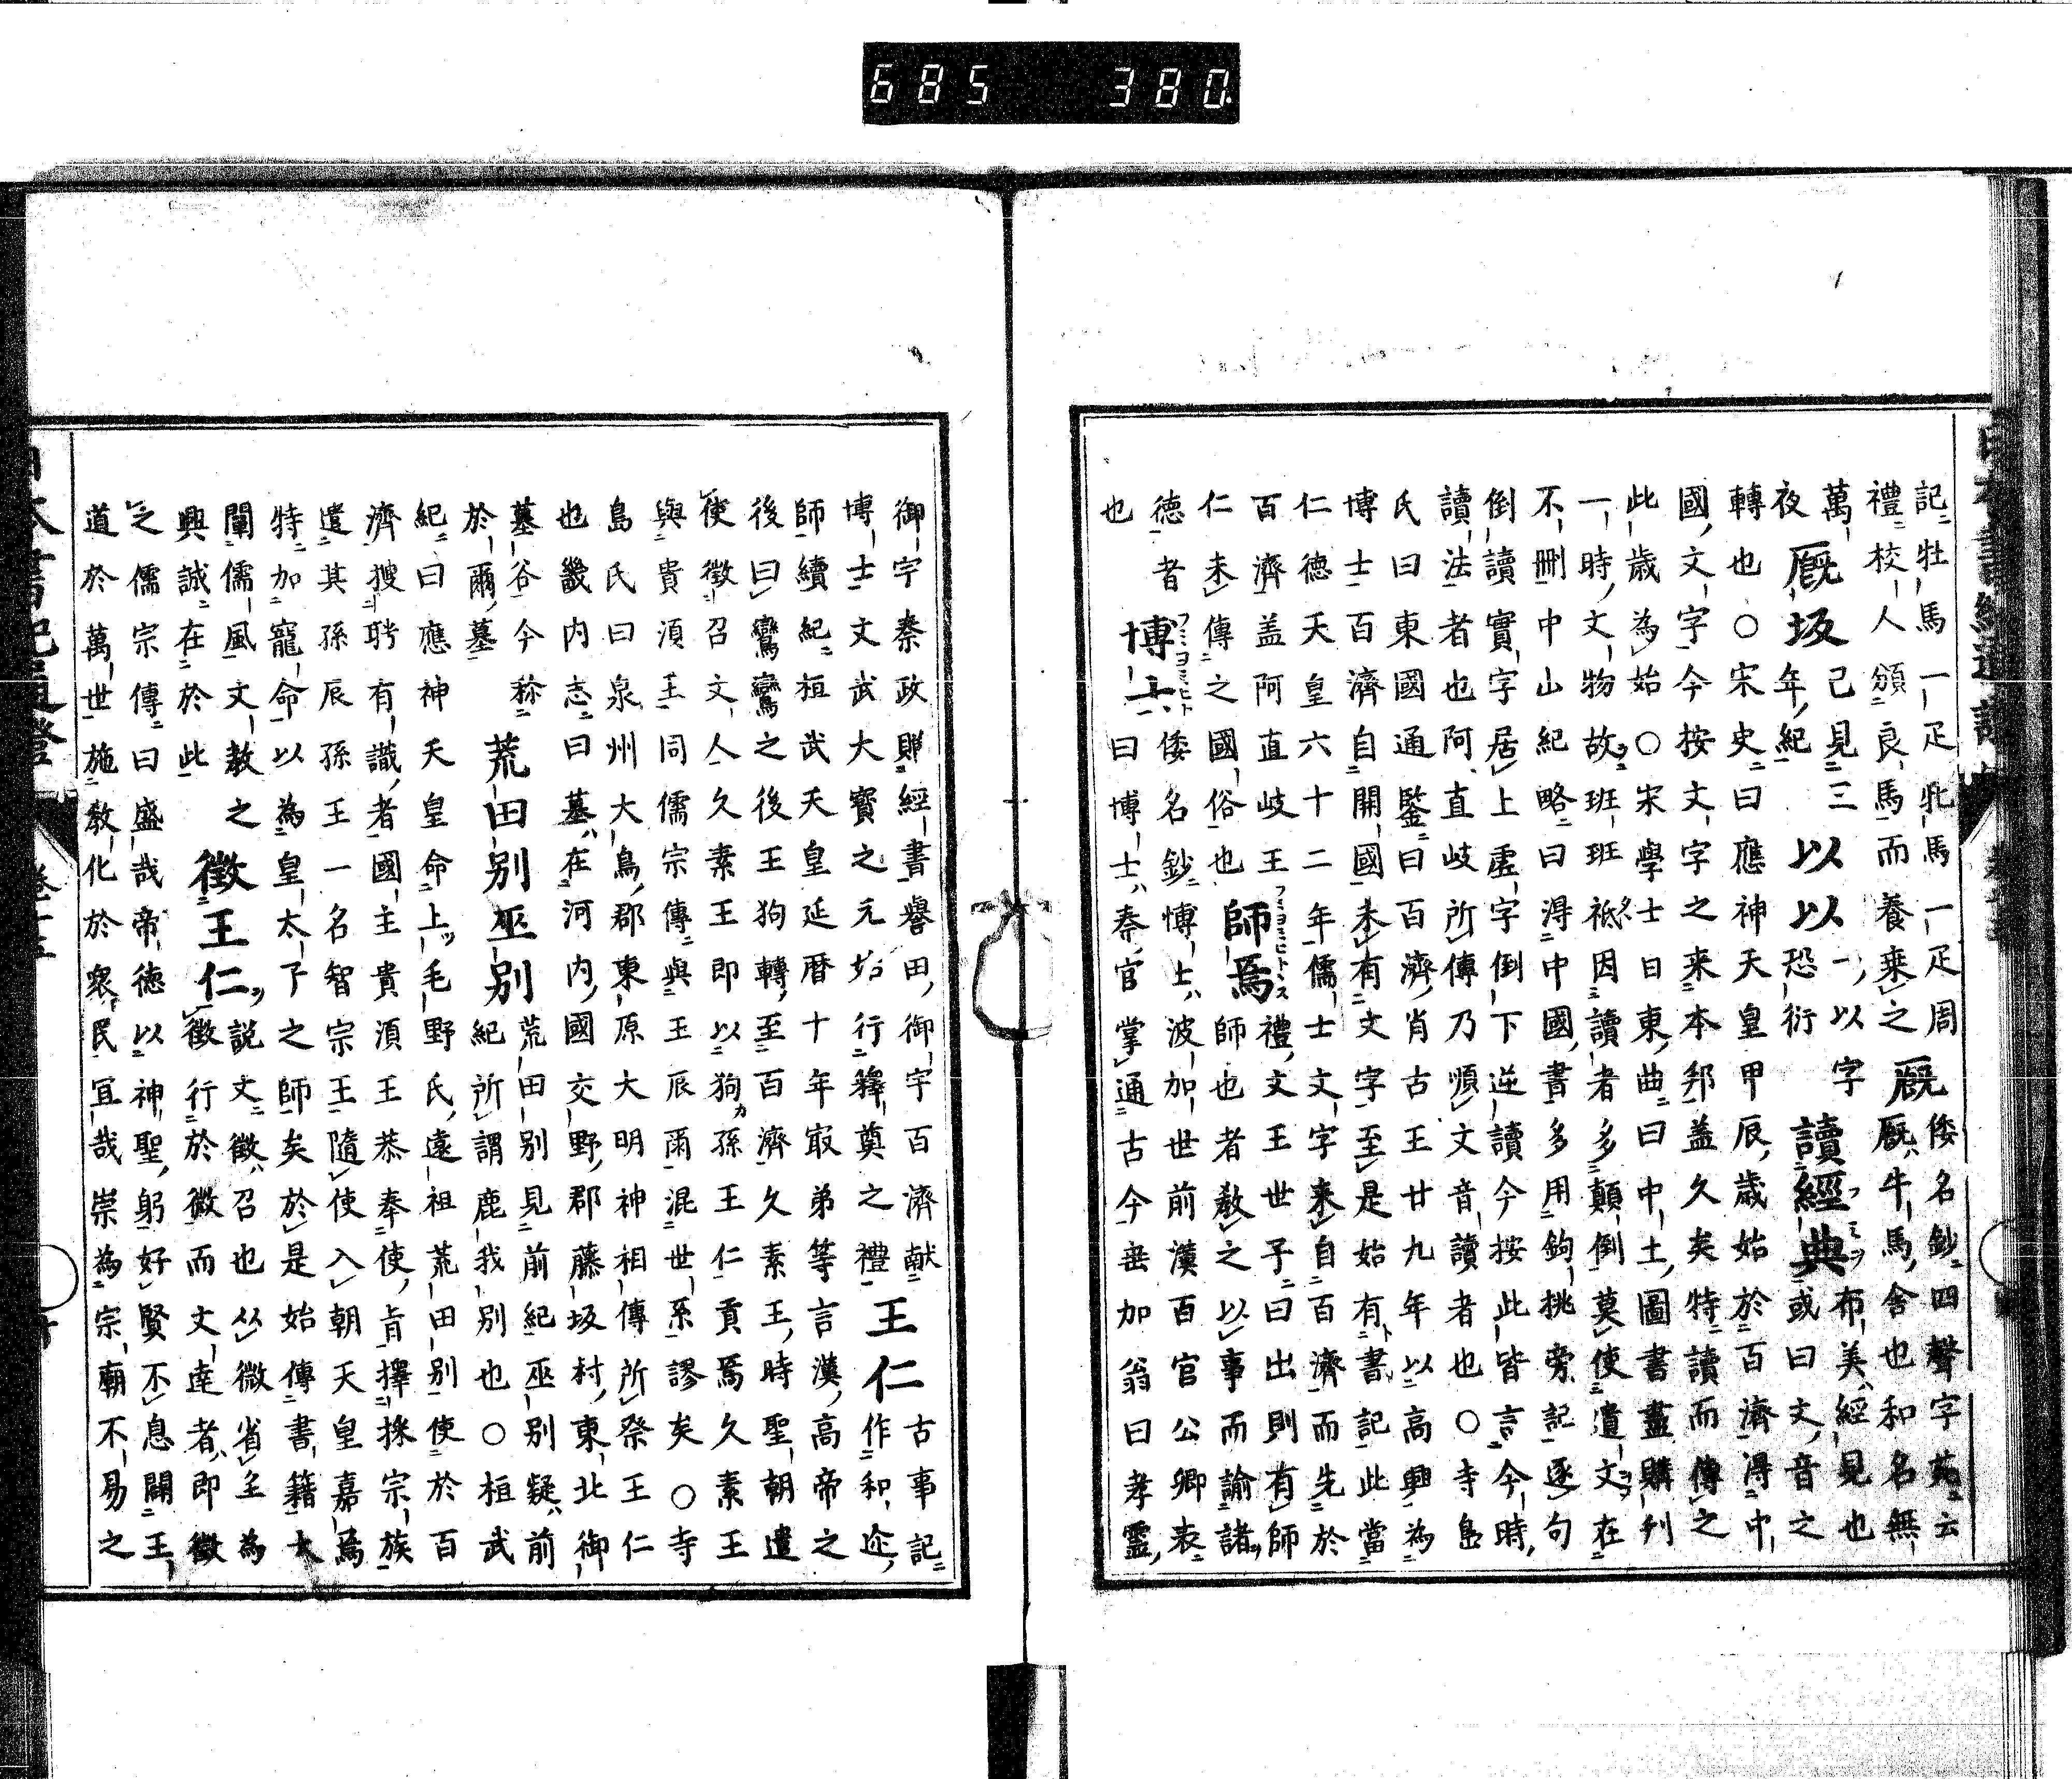 記牡馬一疋牝馬一疋周厩倭名鈔四聲字苑云
禮校人頒良馬而養乗之厩牛馬舍也和名無
萬厩坂己見三以以一以字讀經典布美經見也
夜年紀恐衍或曰文音之
轉也○宋史曰應神天皇甲辰歳始於百濟得中
國文字今按文字之来本邦盖久矣特讀而傳之
此歳為始○宋學士日東曲曰中土圖書盡購刋
一時文物故班班祗因讀者多顛倒莫使遺文在
不刪中山紀略曰得中國書多用鉤挑旁記逐句
倒讀實字居上虚字倒下逆讀今按此皆言今時
讀法者也阿直岐所傳乃順文音讀者也○寺島
氏曰東國通鑒曰百濟肖古王廿九年以高興為
博士百濟自開國未有文字至是始有書記此當
仁徳天皇六十二年儒士文字来自百濟而先於
百濟盖阿直岐王師焉禮文王世子曰出則有師
仁未傳之國俗也師也者教之以事而諭諸
徳者博士倭名鈔博士波加世前漢百官公卿表
也曰博士秦官掌通古今垂加翁曰孝靈
御宇秦政贈經書譽田御宇百濟献王仁古事記
博士文武大寶之元始行釋奠之禮作和迩
師續紀桓武天皇延暦十年冣弟等言漢高帝之
後曰鸞鸞之後王狗轉至百濟久素王時聖朝遣
使徴召文人久素王即以狗孫王仁貢焉久素王
與貴湏王同儒宗傳與王辰爾混世系謬矣○寺
島氏曰泉州大鳥郡東原大明神相傳所祭王仁
也畿内志曰墓在河内國交野郡藤坂村東北御
墓谷今称荒田別巫別荒田別見前紀巫別疑前
於爾墓紀所謂鹿我別也○桓武
紀曰應神天皇命上毛野氏遠祖荒田別使於百
濟搜聘有識者國主貴湏王恭奉使旨擇採宗族
遣其孫辰孫王一名智宗王隨使入朝天皇嘉焉
特加寵命以為皇太子之師矣於是始傳書籍大
闡儒風文教之徴王仁説文徴召也从微省𡈼為
興誠在於此徴行於微而文達者即徴
之儒宗傳曰盛哉帝徳以神聖躬好賢不息闢王
道於萬世施教化於衆民宜哉崇為宗廟不易之
685 380